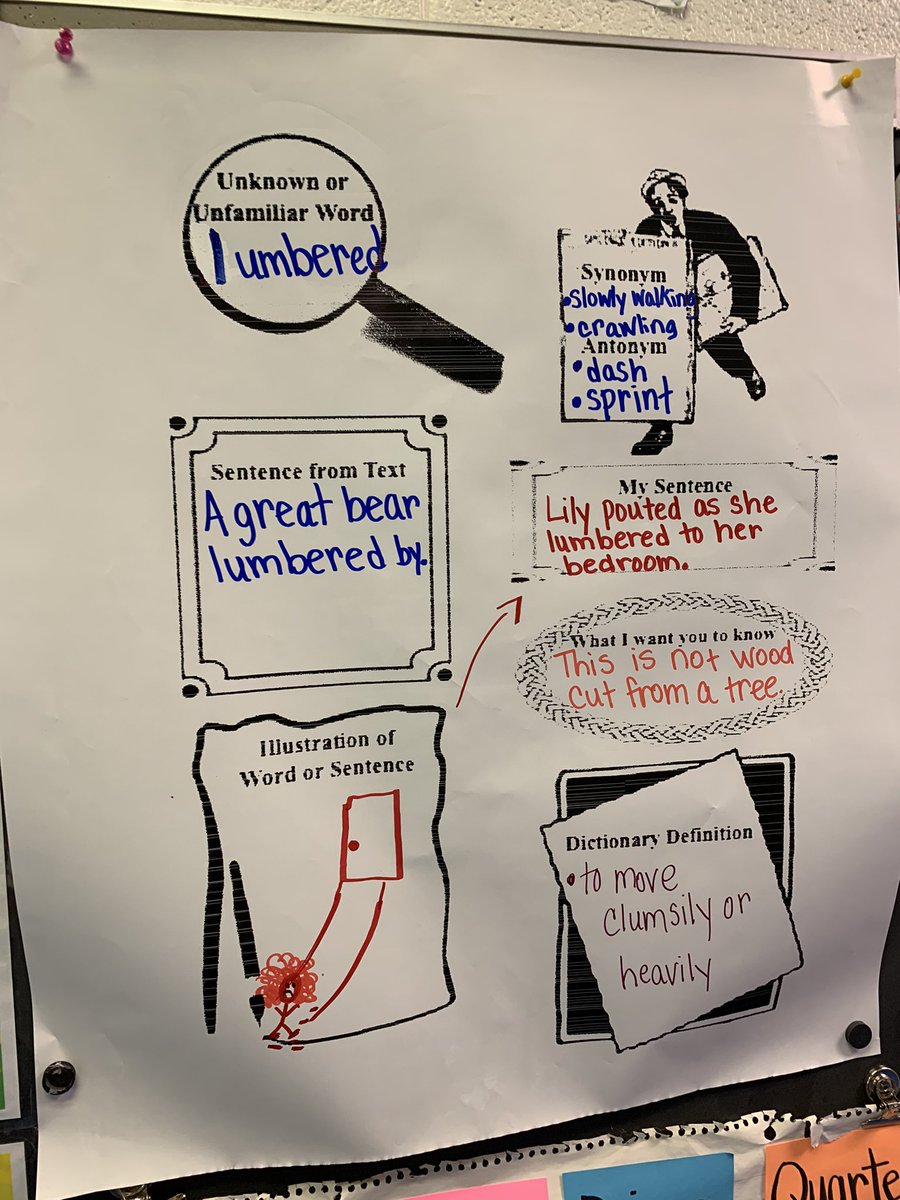 Unknown or
Unfamiliar Word
lumbered
Synonym
• slowly walking
• crawling
Antonym
• dash
• sprint
Sentence from Text
A great bear
lumbered by.
My Sentence
Lily pouted as she
lumbered to her
bedroom.
What I want you to know
This is not wood
cut from a tree.
Illustration of
Word or Sentence
Dictionary Definition
• to move
clumsily or
heavily